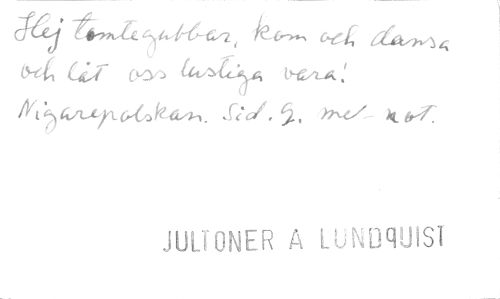 Hej tomtegubbar, kom och dansa
och låt oss lustiga vara!
Nigarepolskan. Sid. 9. med not.
JULTONER A LUNDQUIST